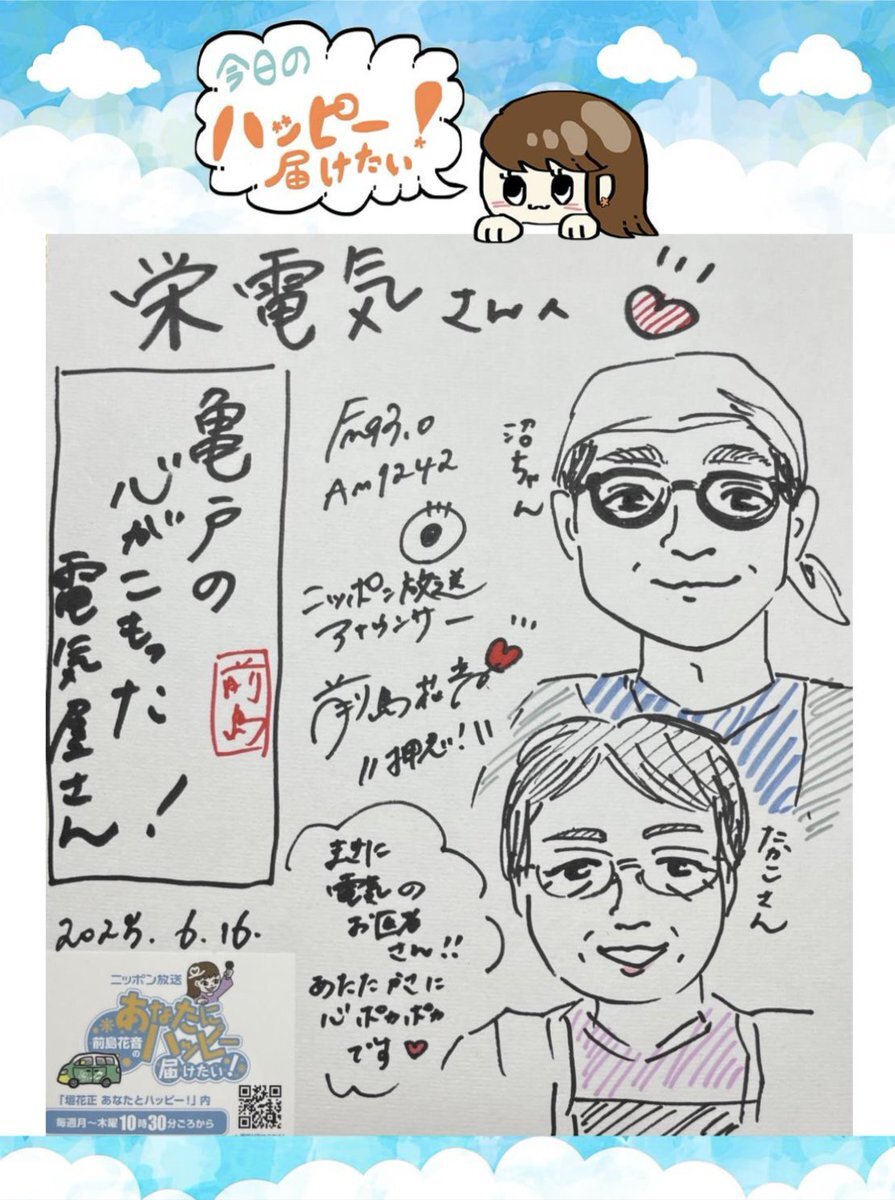 今日の
ハッピー
届けたい!
栄電気さんへ
亀戸の
心がこもった
電気屋さん!
前島
Fm93.0
Am1242
ニッポン放送
アナウンサー
前島花音
沼ちゃん
たかこさん
まさに
電気の
お医者
さん!!
あたたかさに
心ポカポカ
です
6.16.
ニッポン放送
前島花音の
あなたに
ハッピー
届けたい!
「垣花正 あなたとハッピー!」内
毎週月〜木曜10時30分ごろから